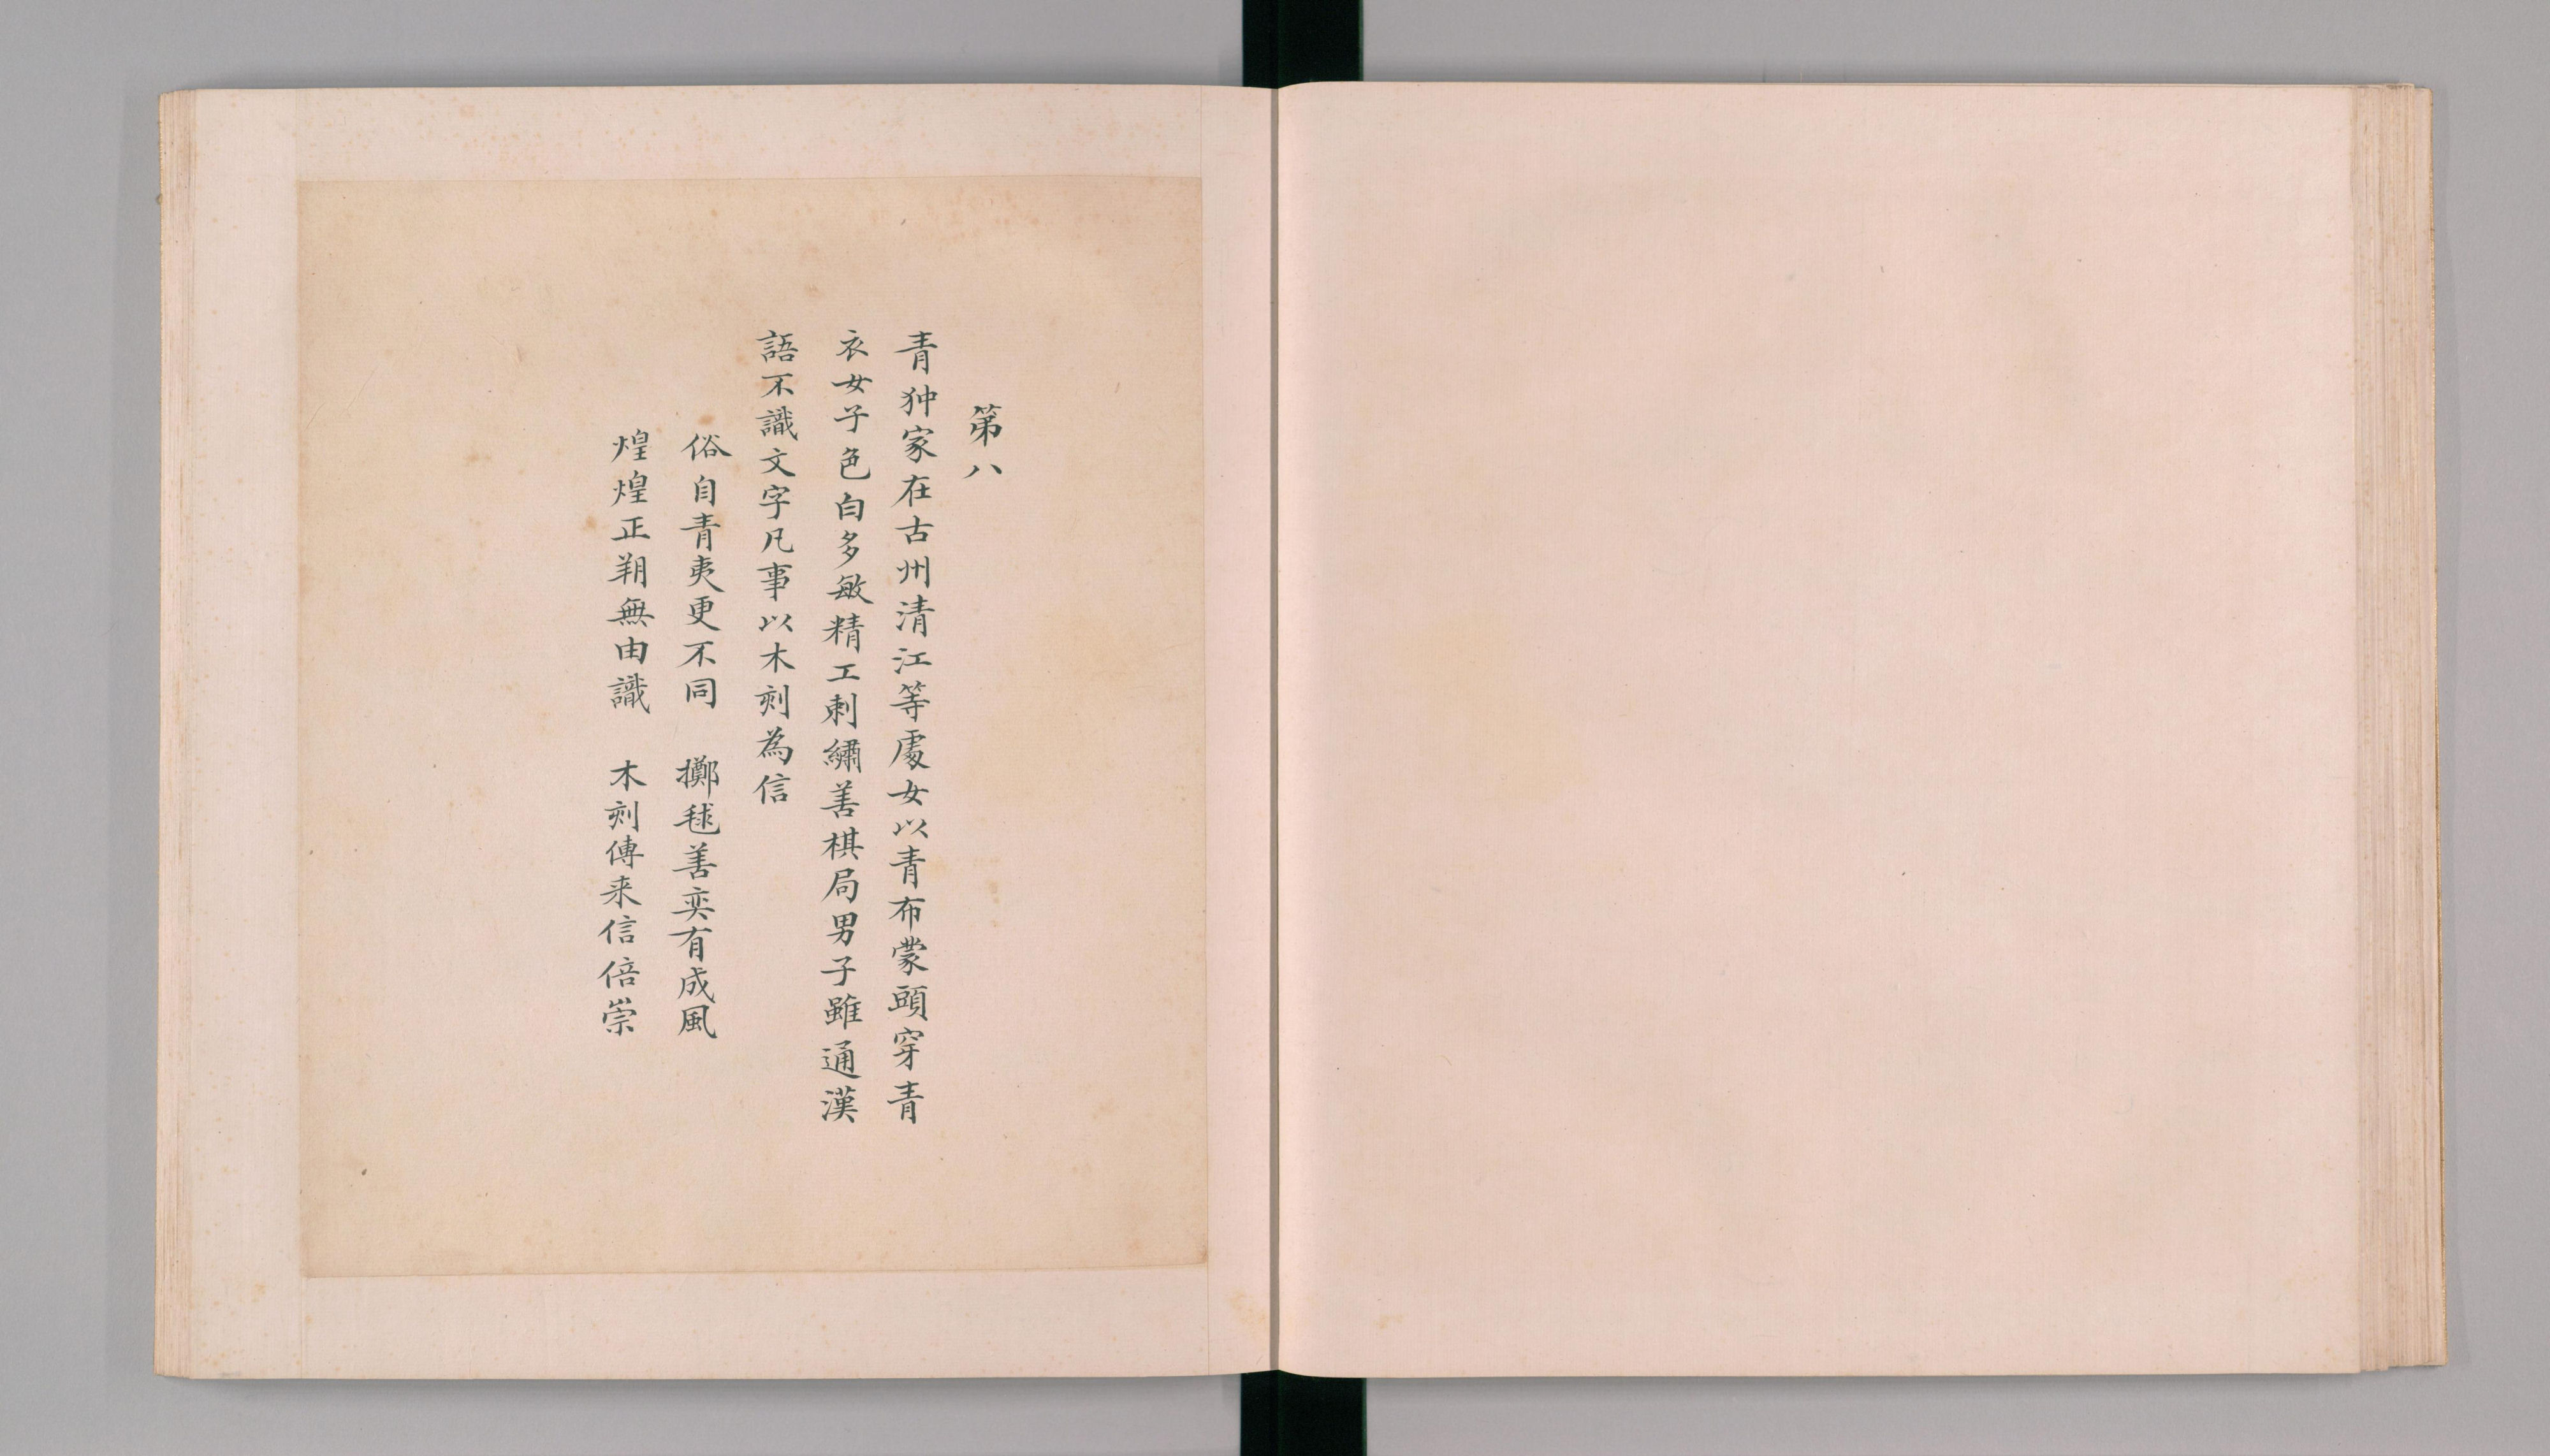 第八
青狆家在古州清江等處女以青布蒙頭穿青
衣女子色白多敏精工刺繡善棋局男子雖通漢
語不識文字凡事以木刻為信
俗自青夷更不同　擲毬善奕有成風
煌煌正朔無由識　木刻傳来信倍崇